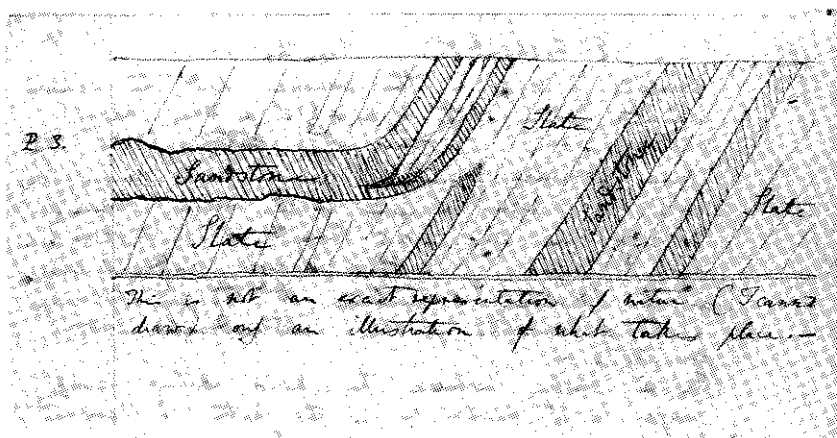 Slate
P. 3.
Sandstone
Sandstone
Slate
Slate
This is not an exact representation of nature (I cannot
draw) only an illustration of what takes place.—